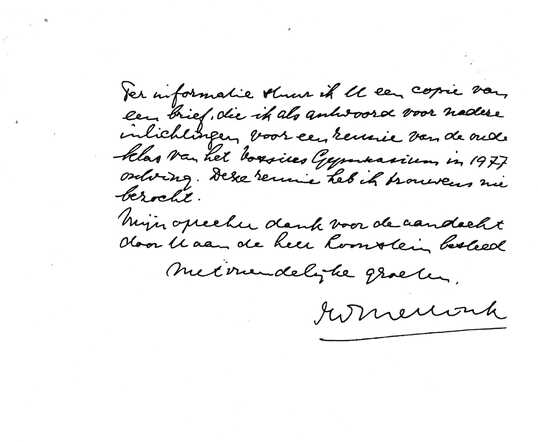 Ter informatie stuur ik U een copie van
een brief, die ik als antwoord voor nadere
inlichtingen voor een reunie van de oude
klas van het Vossius Gymnasium in 1977
ontving. Deze reunie heb ik trouwens nie
bezocht.
Mijn oprechte dank voor de aandacht
door U aan de heer besteed
Met vriendelijke groeten,